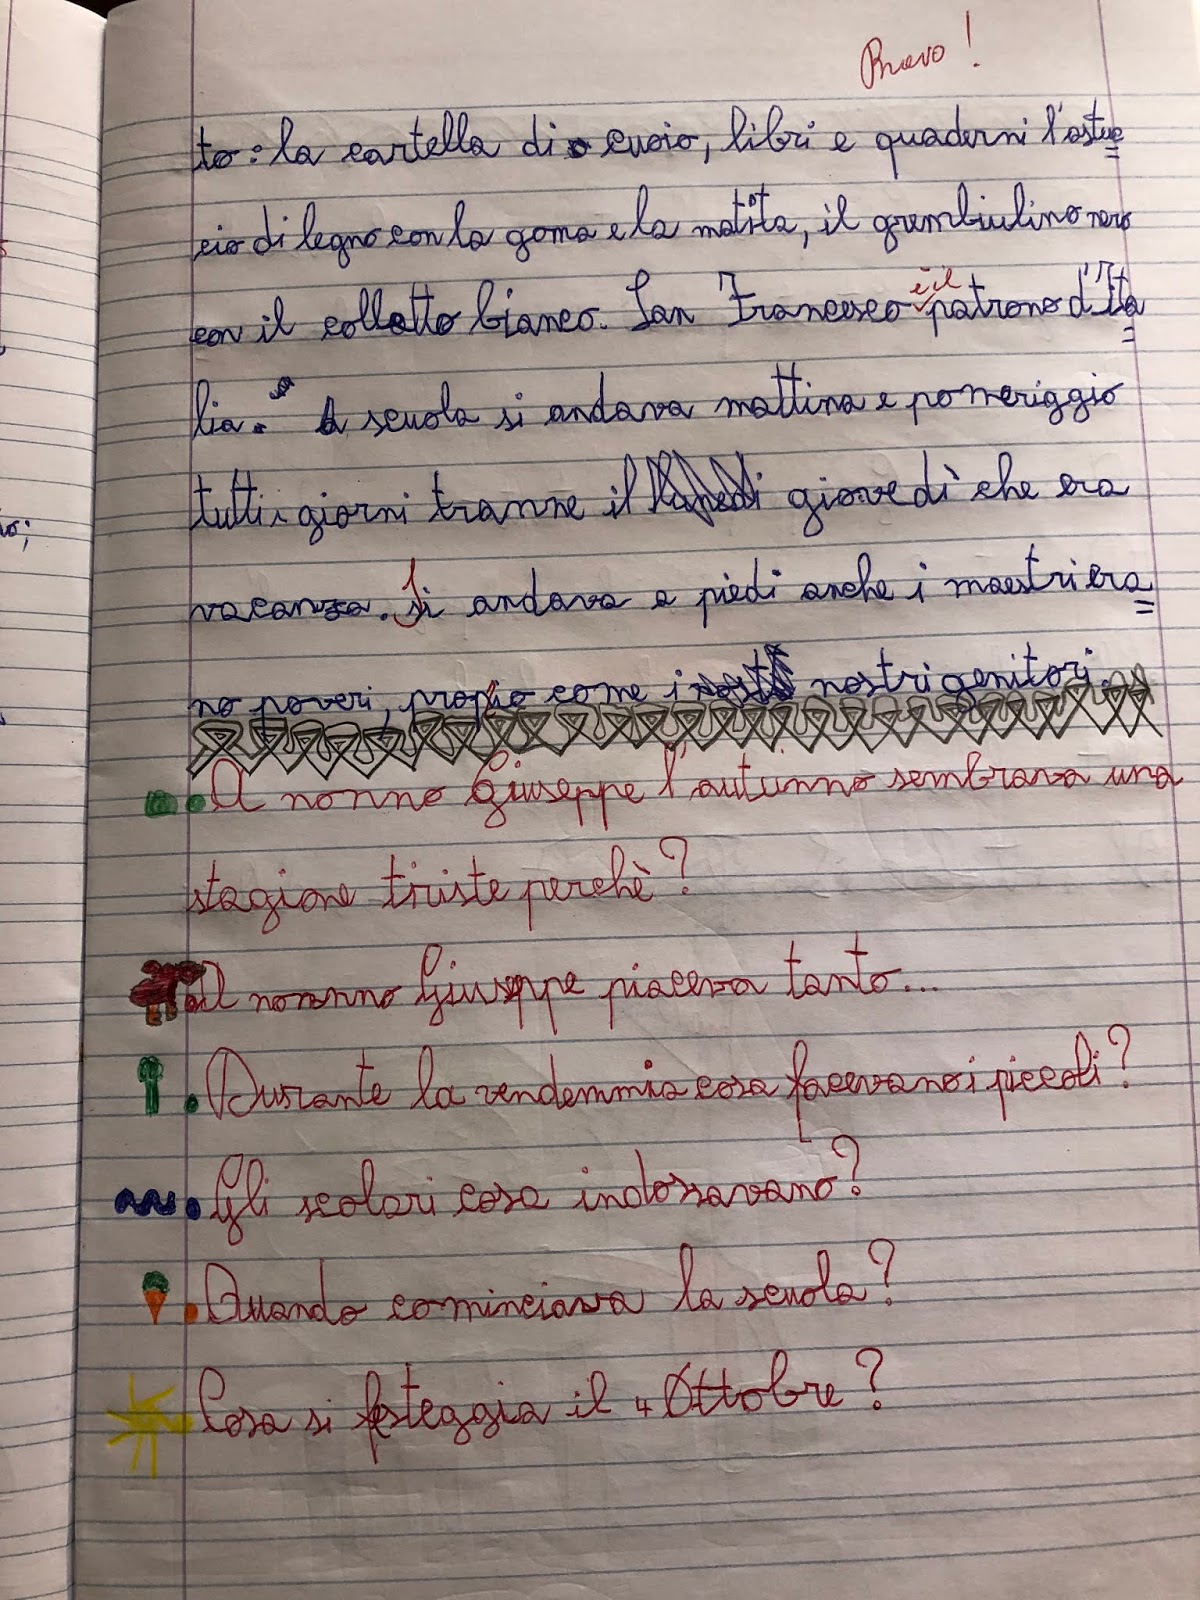 Bravo!
to: la cartella di cuoio, libri e quaderni l'astuc
cio di legno con la goma e la matita, il grembiulino nero
con il colletto bianco. San Francesco è il patrono d'Ita
lia. A scuola si andava mattina e pomeriggio
tutti i giorni tranne il giovedì che era
vacanza. Si andava a piedi anche i maestri era
no poveri, proprio come i nostri genitori.
A nonno Giuseppe l'autunno sembrava una
stagione triste perchè?
Al nonno Giuseppe piaceva tanto...
Durante la vendemmia cosa facevano i piccoli?
Gli scolari cosa indossavano?
Quando cominciava la scuola?
Cosa si festeggia il 4 Ottobre?